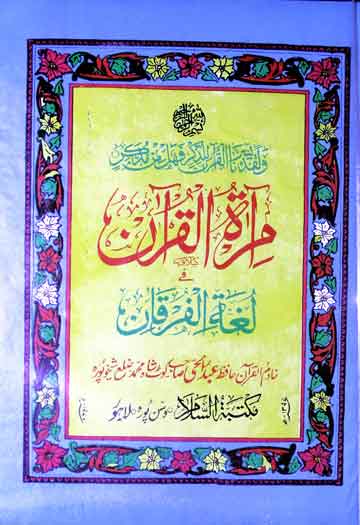 بسم الله الرحمن الرحيم
ولقد يسرنا القرآن للذكر فهل من مدكر
مرآة القرآن
في
لغة الفرقان
خادم القرآن حافظ عبد الحی کوٹ شاہ محمد ضلع شیخوپورہ
مکتبة السلام وسن پورہ لاہور